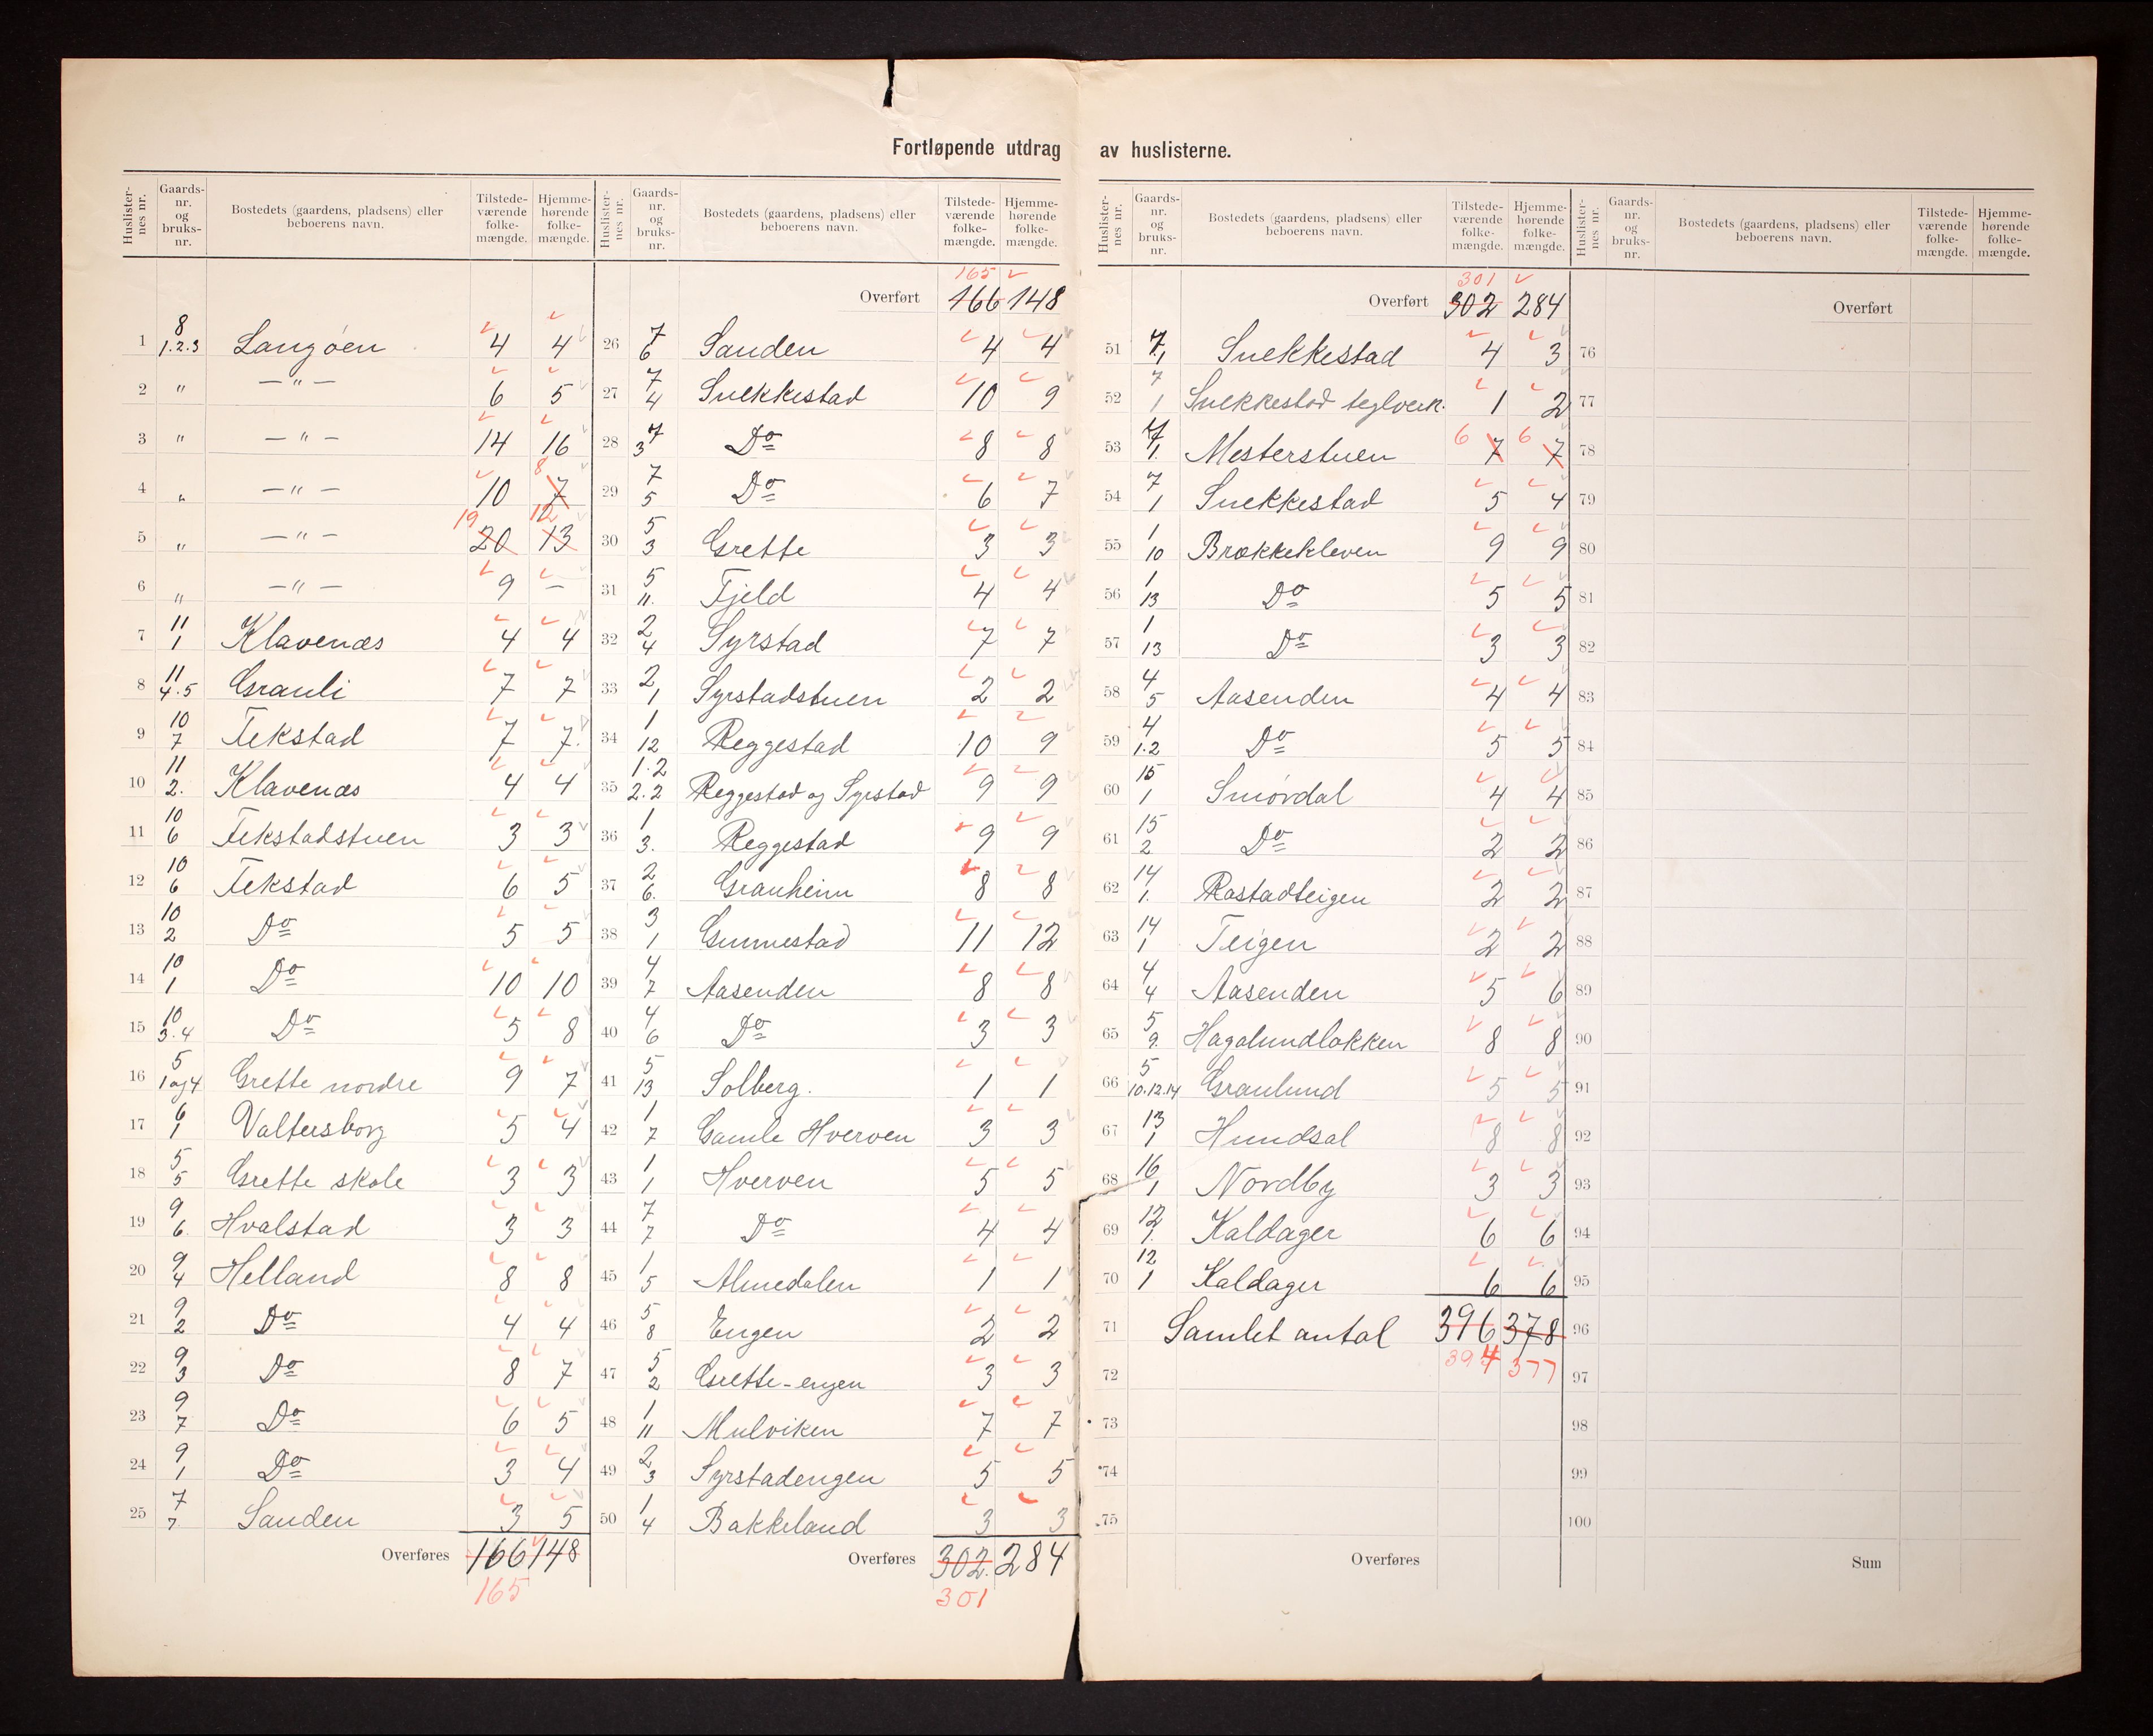 Fortløpende utdrag av huslisterne.
Huslister-nes nr. Gaards-nr. og bruks-nr. Bostedets (gaardens, pladsens) eller beboerens navn. Tilstede-værende folke-mængde. Hjemme-hørende folke-mængde.
1 8 1.2.3 Langøen 4 4
2 " — " — 6 5
3 " — " — 14 16
4 " — " — 10 7 8
5 " — " — 20 19 13 12
6 " — " — 9 —
7 11 1 Klavenæs 4 4
8 11 4.5 Granli 7 7
9 10 7 Fekstad 7 7.
10 11 2. Klavenæs 4 4
11 10 6 Fekstadstuen 3 3
12 10 6 Fekstad 6 5
13 10 2 Do 5 5
14 10 1 Do 10 10
15 10 3.4 Do 5 8
16 5 1 og 4 Grette nordre 9 7
17 6 1 Valtersborg 5 4
18 5 5 Grette skole 3 3
19 9 6. Hvalstad 3 3
20 9 4 Helland 8 8
21 9 2 Do 4 4
22 9 3 Do 8 7
23 9 7 Do 6 5
24 9 1 Do 3 4
25 7 7 Sanden 3 5
Overføres 166 148
165
Huslister-nes nr. Gaards-nr. og bruks-nr. Bostedets (gaardens, pladsens) eller beboerens navn. Tilstede-værende folke-mængde. Hjemme-hørende folke-mængde.
165
Overført 166 148
26 7 6 Sanden 4 4
27 7 4 Snekkestad 10 9
28 7 3 Do 8 8
29 7 5 Do 6 7
30 5 3 Grette 3 3
31 5 11. Fjeld 4 4
32 2 4 Syrstad 7 7
33 2 1 Syrstadstuen 2 2
34 1 12 Reggestad 10 9
35 1.2 2.2 Reggestad og Syrstad 9 9
36 1 3. Reggestad 9 9
37 2 6. Granheim 8 8
38 3 1 Gunnestad 11 12
39 4 7 Aasenden 8 8
40 4 6 Do 3 3
41 5 13 Solberg. 1 1
42 1 7 Gamle Hverven 3 3
43 1 1 Hverven 5 5
44 7 7 Do 4 4
45 1 5 Almedalen 1 1
46 5 8 Engen 2 2
47 5 2 Grette-engen 3 3
48 1 11 Mulviken 7 7
49 2 3 Syrstadengen 5 5
50 1 4 Bakkeland 3 3
Overføres 302. 284
301
Huslister-nes nr. Gaards-nr. og bruks-nr. Bostedets (gaardens, pladsens) eller beboerens navn. Tilstede-værende folke-mængde. Hjemme-hørende folke-mængde.
301
Overført 302 284
51 7 1 Snekkestad 4 3
52 7 1 Snekkestad teglverk. 1 2
53 7 1. Mesterstuen 6 7 6 7
54 7 1 Snekkestad 5 4
55 1 10 Brækkekleven 9 9
56 1 13 Do 5 5
57 1 13 Do 3 3
58 4 5 Aasenden 4 4
59 4 1.2 Do 5 5
60 15 1 Smørdal 4 4
61 15 2 Do 2 2
62 14 1. Rastadteigen 2 2
63 14 1 Teigen 2 2
64 4 4 Aasenden 5 6
65 5 9. Hagalundløkken 8 8
66 5 10.12.14 Granlund 5 5
67 13 1 Hundsal 8 8
68 16 1 Nordby 3 3
69 12 1. Kaldager 6 6
70 12 1 Kaldager 6 6
71 Samlet antal 396 378
72 394 377
73
74
75
Overføres
Huslister-nes nr. Gaards-nr. og bruks-nr. Bostedets (gaardens, pladsens) eller beboerens navn. Tilstede-værende folke-mængde. Hjemme-hørende folke-mængde.
Overført
76
77
78
79
80
81
82
83
84
85
86
87
88
89
90
91
92
93
94
95
96
97
98
99
100
Sum